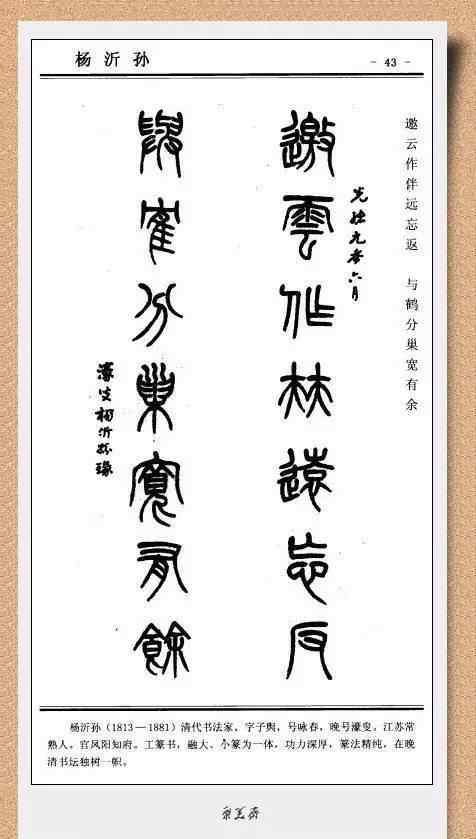 杨沂孙
- 43 -
邀云作伴远忘返 与鹤分巢宽有余
邀雲作㚘遠忘反
光緒年六月
與寉分巢寬有餘
濠叟楊沂孫篆
杨沂孙(1813—1881)清代书法家。字子舆，号咏春，晚号濠叟。江苏常
熟人。官凤阳知府。工篆书，融大、小篆为一体，功力深厚，篆法精纯，在晚
清书坛独树一帜。